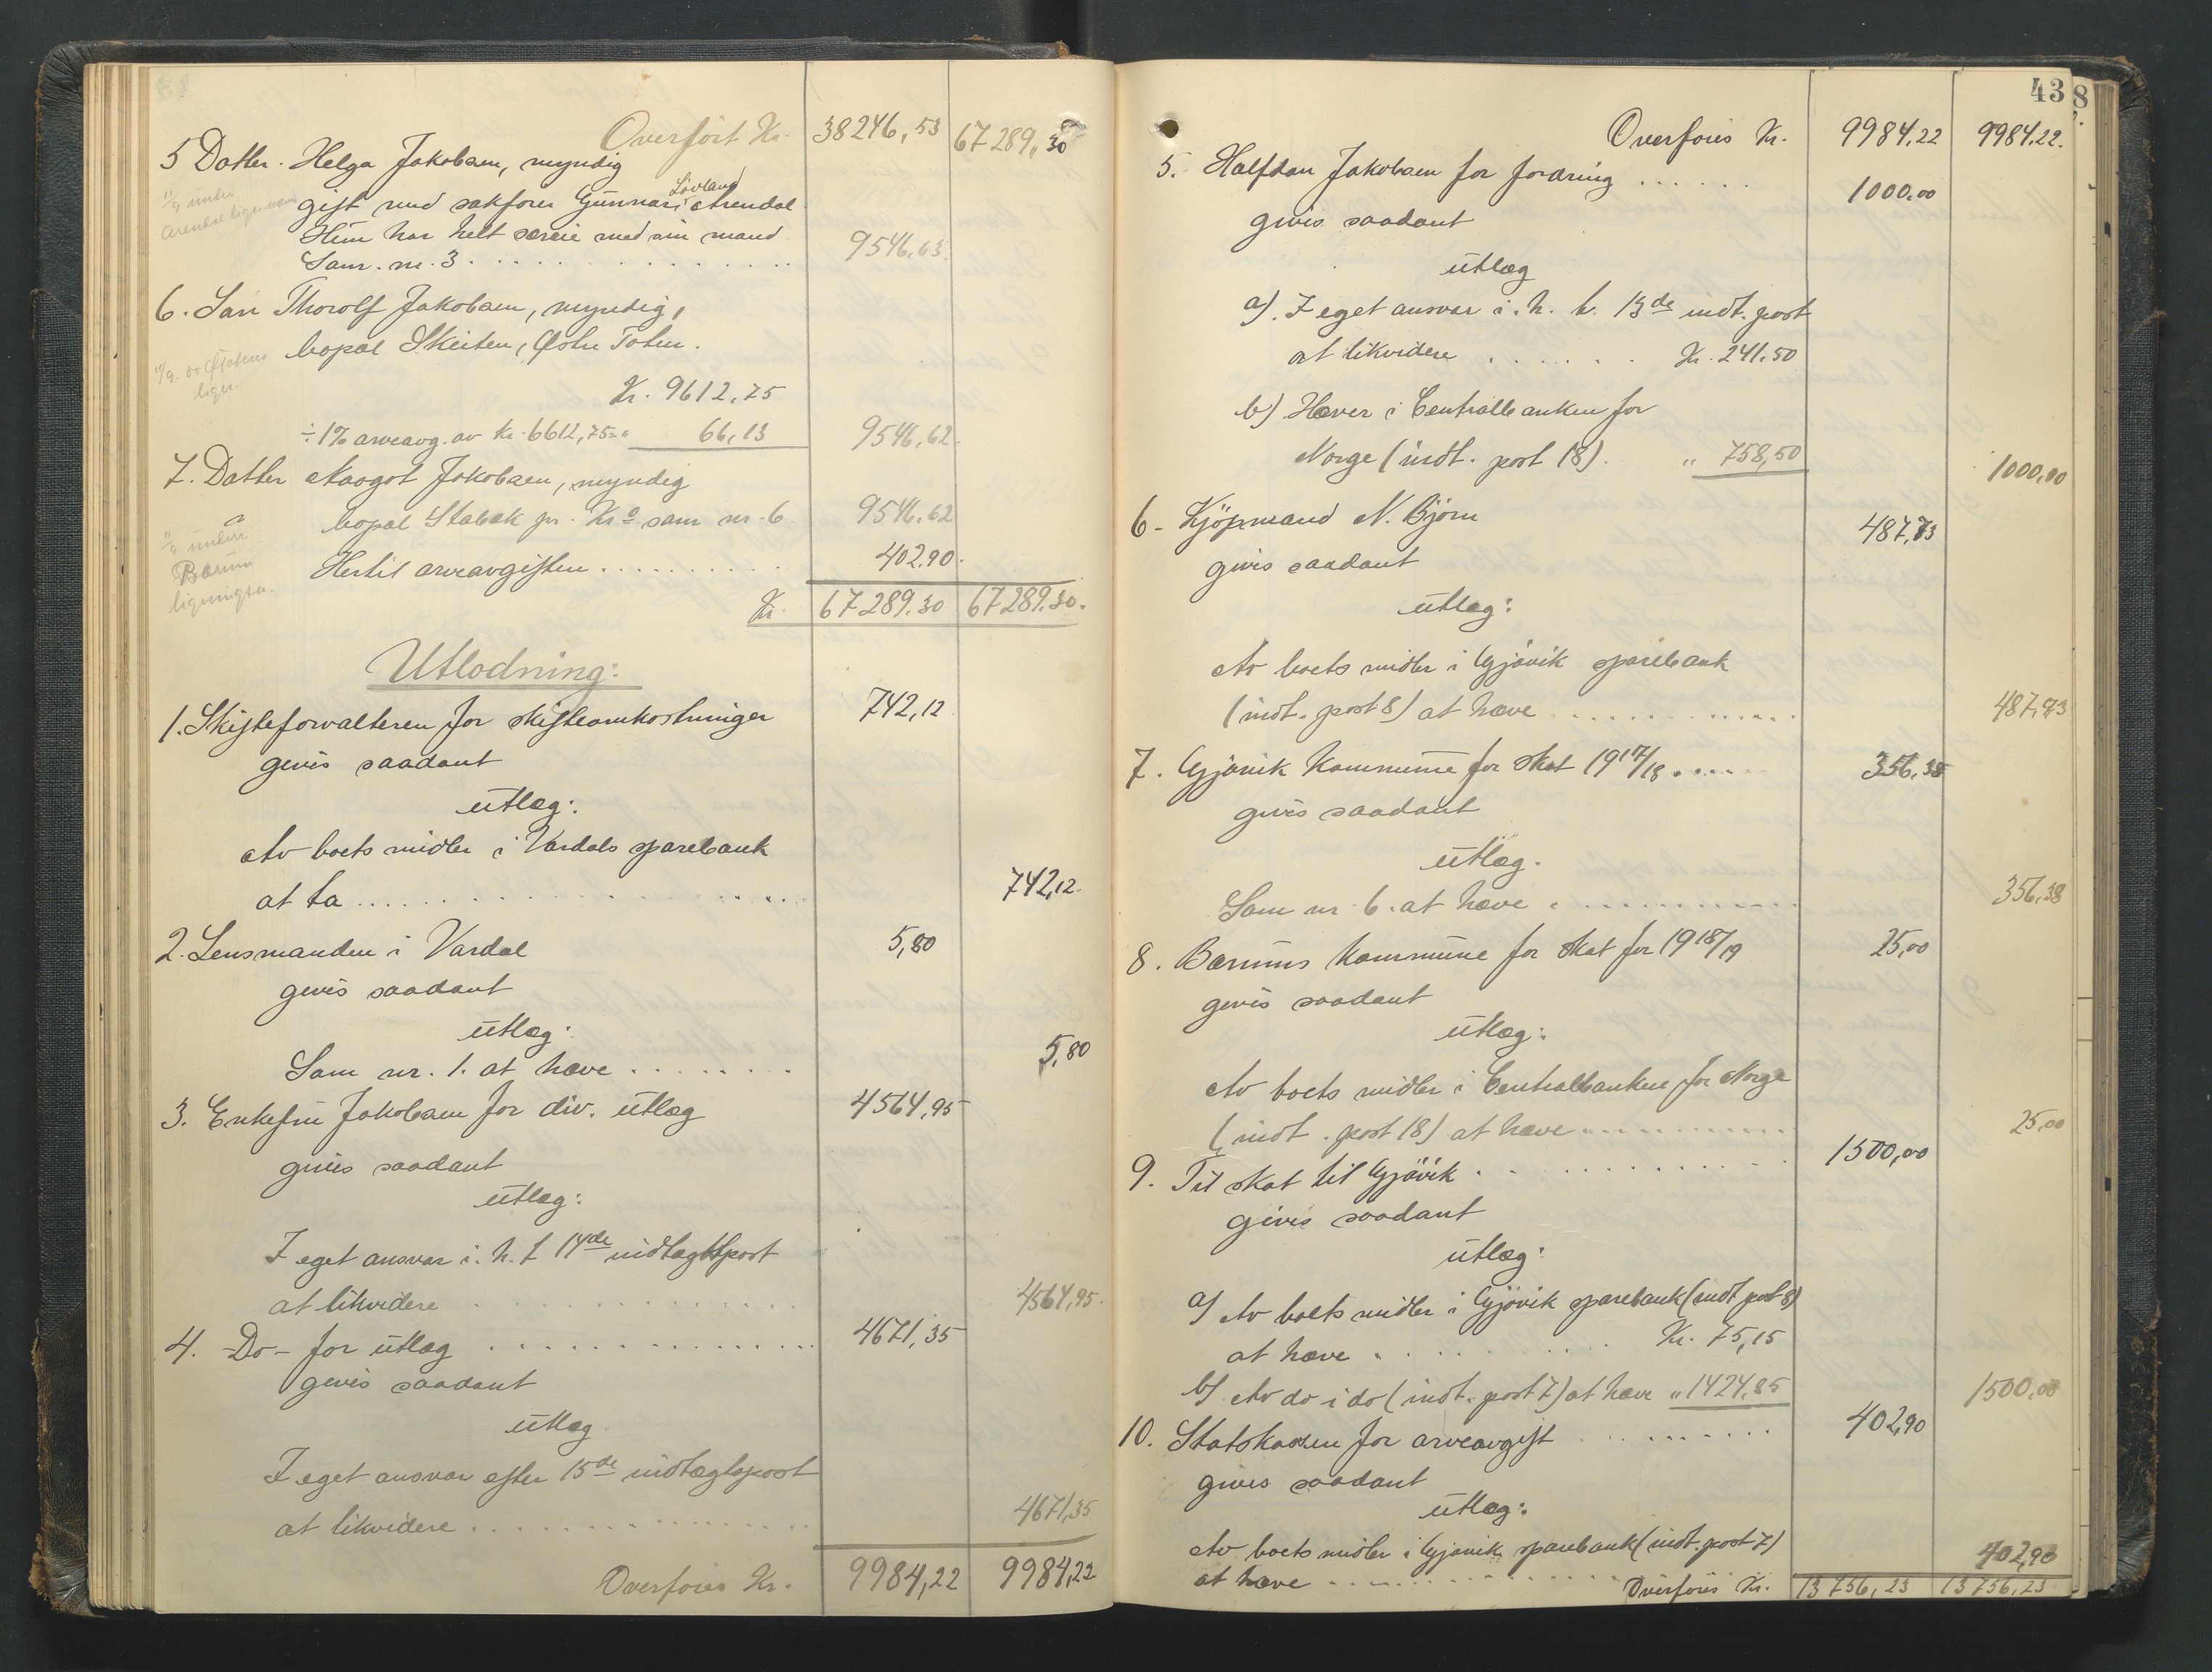 Overført Kr. 38246,53 67289,30
5 Datter Helga Jakobsen, myndig
11/9 under
Arendal lignings
gift med sakfører Gunnar Lövland i Arendal
Hun har helt særeie med sin mand
Sam. nr. 3 . . . . . 9546,63
6. Søn Thorolf Jakobsen, myndig,
bopæl Skeiten, Østre Toten.
11/9. do Ø Totens
lign.
Kr. 9612,75
÷ 1% arveavg. av kr. 6612,75 = " 66,13 9546,62
7. Datter Aagot Jakobsen, myndig
bopæl Stabæk pr. Kra sam nr. 6 9546,62
11/9 under
Bærum
ligningen.
Hertil arveavgiften . . . . . 402.90.
Kr. 67289.30 67289.30.
Utlodning:
1. Skifteforvalteren for skifteomkostninger 742,12
gives saadant
utlæg:
Av boets midler i Vardals sparebank
at ta . . . . . 742,12.
2. Lensmanden i Vardal 5,80
gives saadant
utlæg:
Som nr. 1. at hæve . . . . . 5,80
3. Enkefru Jakobsen for div. utlæg 4564,95
gives saadant
utlæg:
I eget ansvar i. h. t 14de indtægtspost
at likvidere . . . . . 4564,95.
4. -Do- for utlæg . . . . . 4671,35
gives saadant
utlæg.
I eget ansvar efter 15de indtægtspost
at likvidere . . . . . 4671,35
Overføres Kr. 9984,22 9984,22
43
8
Overføres Kr. 9984,22 9984,22.
5. Halfdan Jakobsen for fordring . . . . . 1000.00
gives saadant
utlæg
a). I eget ansvar i. h. t. 13de indt. post
at likvidere . . . . . Kr. 241.50
b) Hæver i Centralbanken for
Norge (indt. post 18). " 758,50 1000,00
6- Kjöpmand N. Björn 487,73
gives saadant
utlæg:
Av boets midler i Gjövik sparebank
(indt. post 8) at hæve . . . . . 487,73
7. Gjövik kommune for skat 1917/18 . . . . 356,38
gives saadant
utlæg.
Som nr. 6. at hæve . . . . . 356,38
8. Bærums kommune for skat for 1918/19 25,00
gives saadant
utlæg:
Av boets midler i Centralbanken for Norge
(indt. post 18) at hæve . . . . . 25,00
9. Til skat til Gjövik . . . . . 1500,00
gives saadant
utlæg:
a) Av boets midler i Gjövik sparebank (indt post 8)
at hæve . . . . . Kr. 75,15
b) Av do i do (indt. post 7) at hæve " 1424,85 1500,00
10. Statskassen for arveavgift . . . . . 402,90
gives saadant
utlæg:
Av boets midler i Gjövik sparebank (indt. post 7)
at hæve . . . . . 402,90
Overføres Kr. 13756,23 13756,23